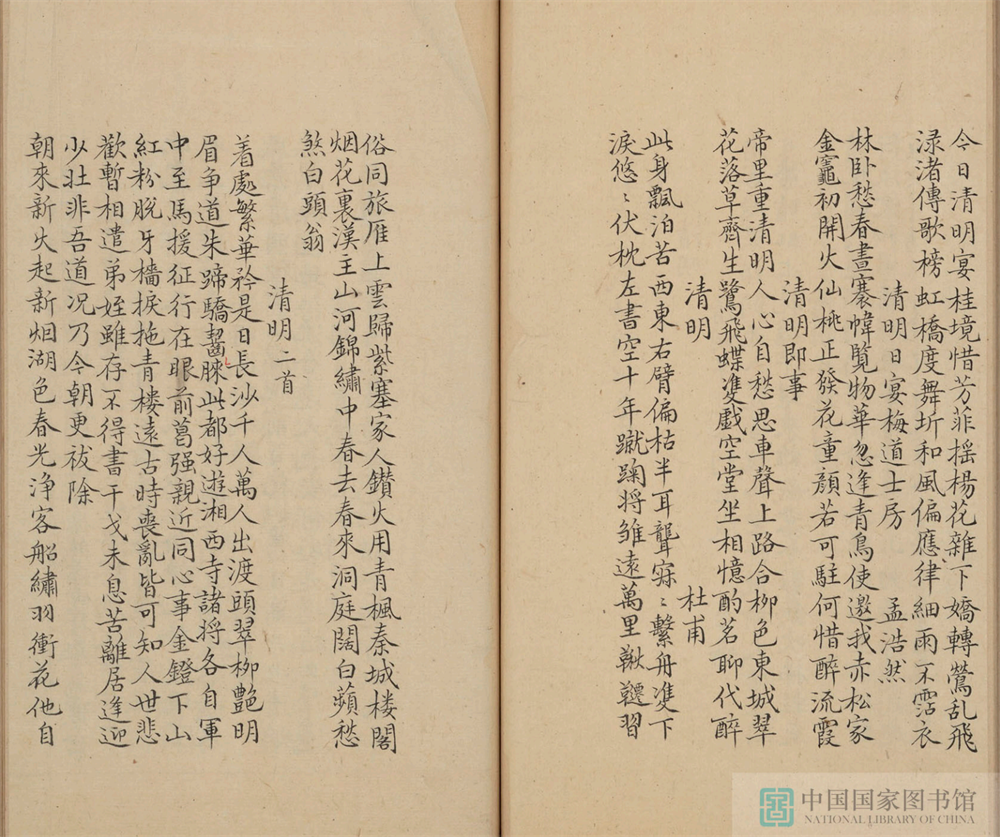 今日清明宴桂境惜芳菲摇楊花雜下嬌轉鶯乱飛
渌渚傳歌榜虹橋度舞圻和風偏應律細雨不霑衣
清明日宴梅道士房 孟浩然
林卧愁春晝褰幃覽物華忽逢青鳥使邀我赤松家
金竈初開火仙桃正發花童顔若可駐何惜醉流霞
清明即事
帝里重清明人心自愁思車聲上路合柳色東城翠
花落草齊生鷺飛蝶雙戲空堂坐相憶酌茗聊代醉
清明 杜甫
此身飄泊苦西東右臂偏枯半耳聾寂〻繫舟雙下
淚悠〻伏枕左書空十年蹴踘將雛遠萬里鞦韆習
俗同旅雁上雲歸紫塞家人鑚火用青楓秦城楼閣
烟花裏漢主山河錦繡中春去春來洞庭闊白蘋愁
煞白頭翁
清明二首
着處繁華矜是日長沙千人萬人出渡頭翠柳艷明
眉争道朱蹄驕齧膝此都好遊湘西寺諸将各自軍
中至馬援征行在眼前葛强親近同心事金鐙下山
紅粉脱牙檣捩拖青楼遠古時喪亂皆可知人世悲
歡暫相遣弟姪雖存不得書干戈未息苦離居逢迎
少壯非吾道况乃今朝更祓除
朝來新火起新烟湖色春光浄客船繡羽衝花他自
中国国家图书馆
NATIONAL LIBRARY OF CHINA